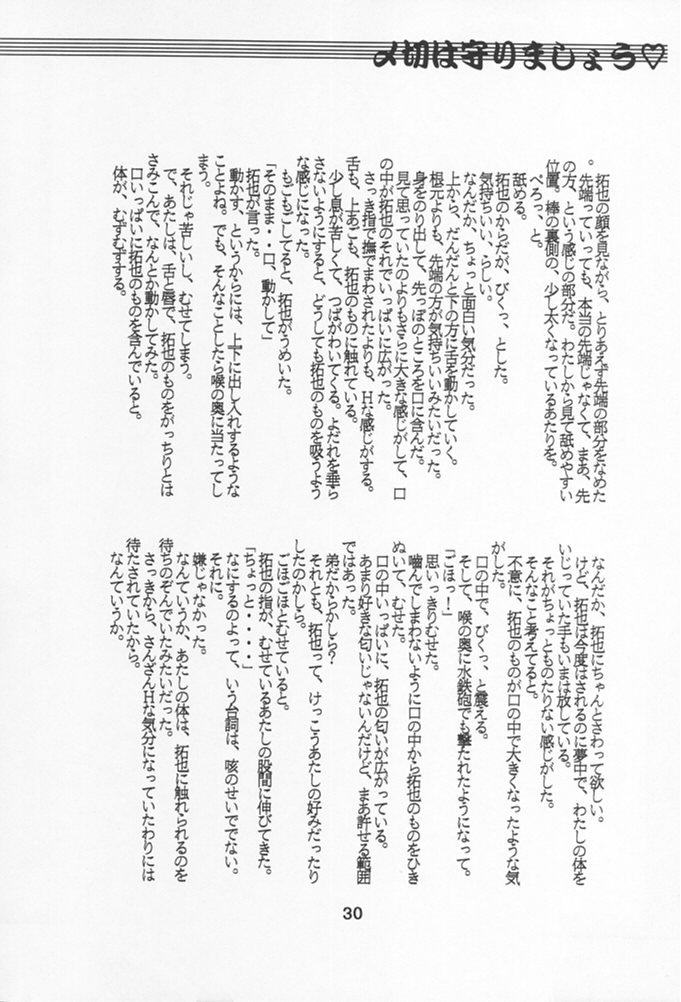 〆切は守りましょう♡
拓也の顔を見ながら、とりあえず先端の部分をなめた
。先端っていっても、本当の先端じゃなくて、まあ、先
の方、という感じの部分だ。わたしから見て舐めやすい
位置。棒の裏側の、少し太くなっているあたりを。
ぺろっ、と。
舐める。
拓也のからだが、びくっ、とした。
気持ちいい、らしい。
なんだか、ちょっと面白い気分だった。
上から、だんだんと下の方に舌を動かしていく。
根元よりも、先端の方が気持ちいいみたいだった。
身をのり出して、先っぽのところを口に含んだ。
見て思っていたのよりもさらに大きな感じがして、口
の中が拓也のそれでいっぱいに広がった。
さっき指で撫でまわされたよりも、Hな感じがする。
舌も、上あごも、拓也のものに触れている。
少し息が苦しくて、つばがわいてくる。よだれを垂ら
さないようにすると、どうしても拓也のものを吸うよう
な感じになった。
もごもごしてると、拓也がうめいた。
「そのまま・・口、動かして」
拓也が言った。
動かす、というからには、上下に出し入れするような
ことよね。でも、そんなことしたら喉の奥に当たってし
まう。
それじゃ苦しいし、むせてしまう。
で、あたしは、舌と唇で、拓也のものをがっちりとは
さみこんで、なんとか動かしてみた。
口いっぱいに拓也のものを含んでいると。
体が、むずむずする。
なんだか、拓也にちゃんとさわって欲しい。
けど、拓也は今度はされるのに夢中で、わたしの体を
いじっていた手もいまは放している。
それがちょっとものたりない感じがした。
そんなこと考えてると。
不意に、拓也のものが口の中で大きくなったような気
がした。
口の中で、びくっ、と震える。
そして、喉の奥に水鉄砲でも撃たれたようになって。
「ごほっ！」
思いっきりむせた。
噛んでしまわないように口の中から拓也のものをひき
ぬいて、むせた。
口の中いっぱいに、拓也の匂いが広がっている。
あまり好きな匂いじゃないんだけど、まあ許せる範囲
ではあった。
弟だからかしら？
それとも、拓也って、けっこうあたしの好みだったり
したのかしら。
ごほごほとむせていると。
拓也の指が、むせているあたしの股間に伸びてきた。
「ちょっと・・・・」
なにするのよって、いう台詞は、咳のせいででない。
それに。
嫌じゃなかった。
なんていうか、あたしの体は、拓也に触れられるのを
待ちのぞんでいたみたいだった。
さっきから、さんざんHな気分になっていたわりには
待たされていたから。
なんていうか。
30